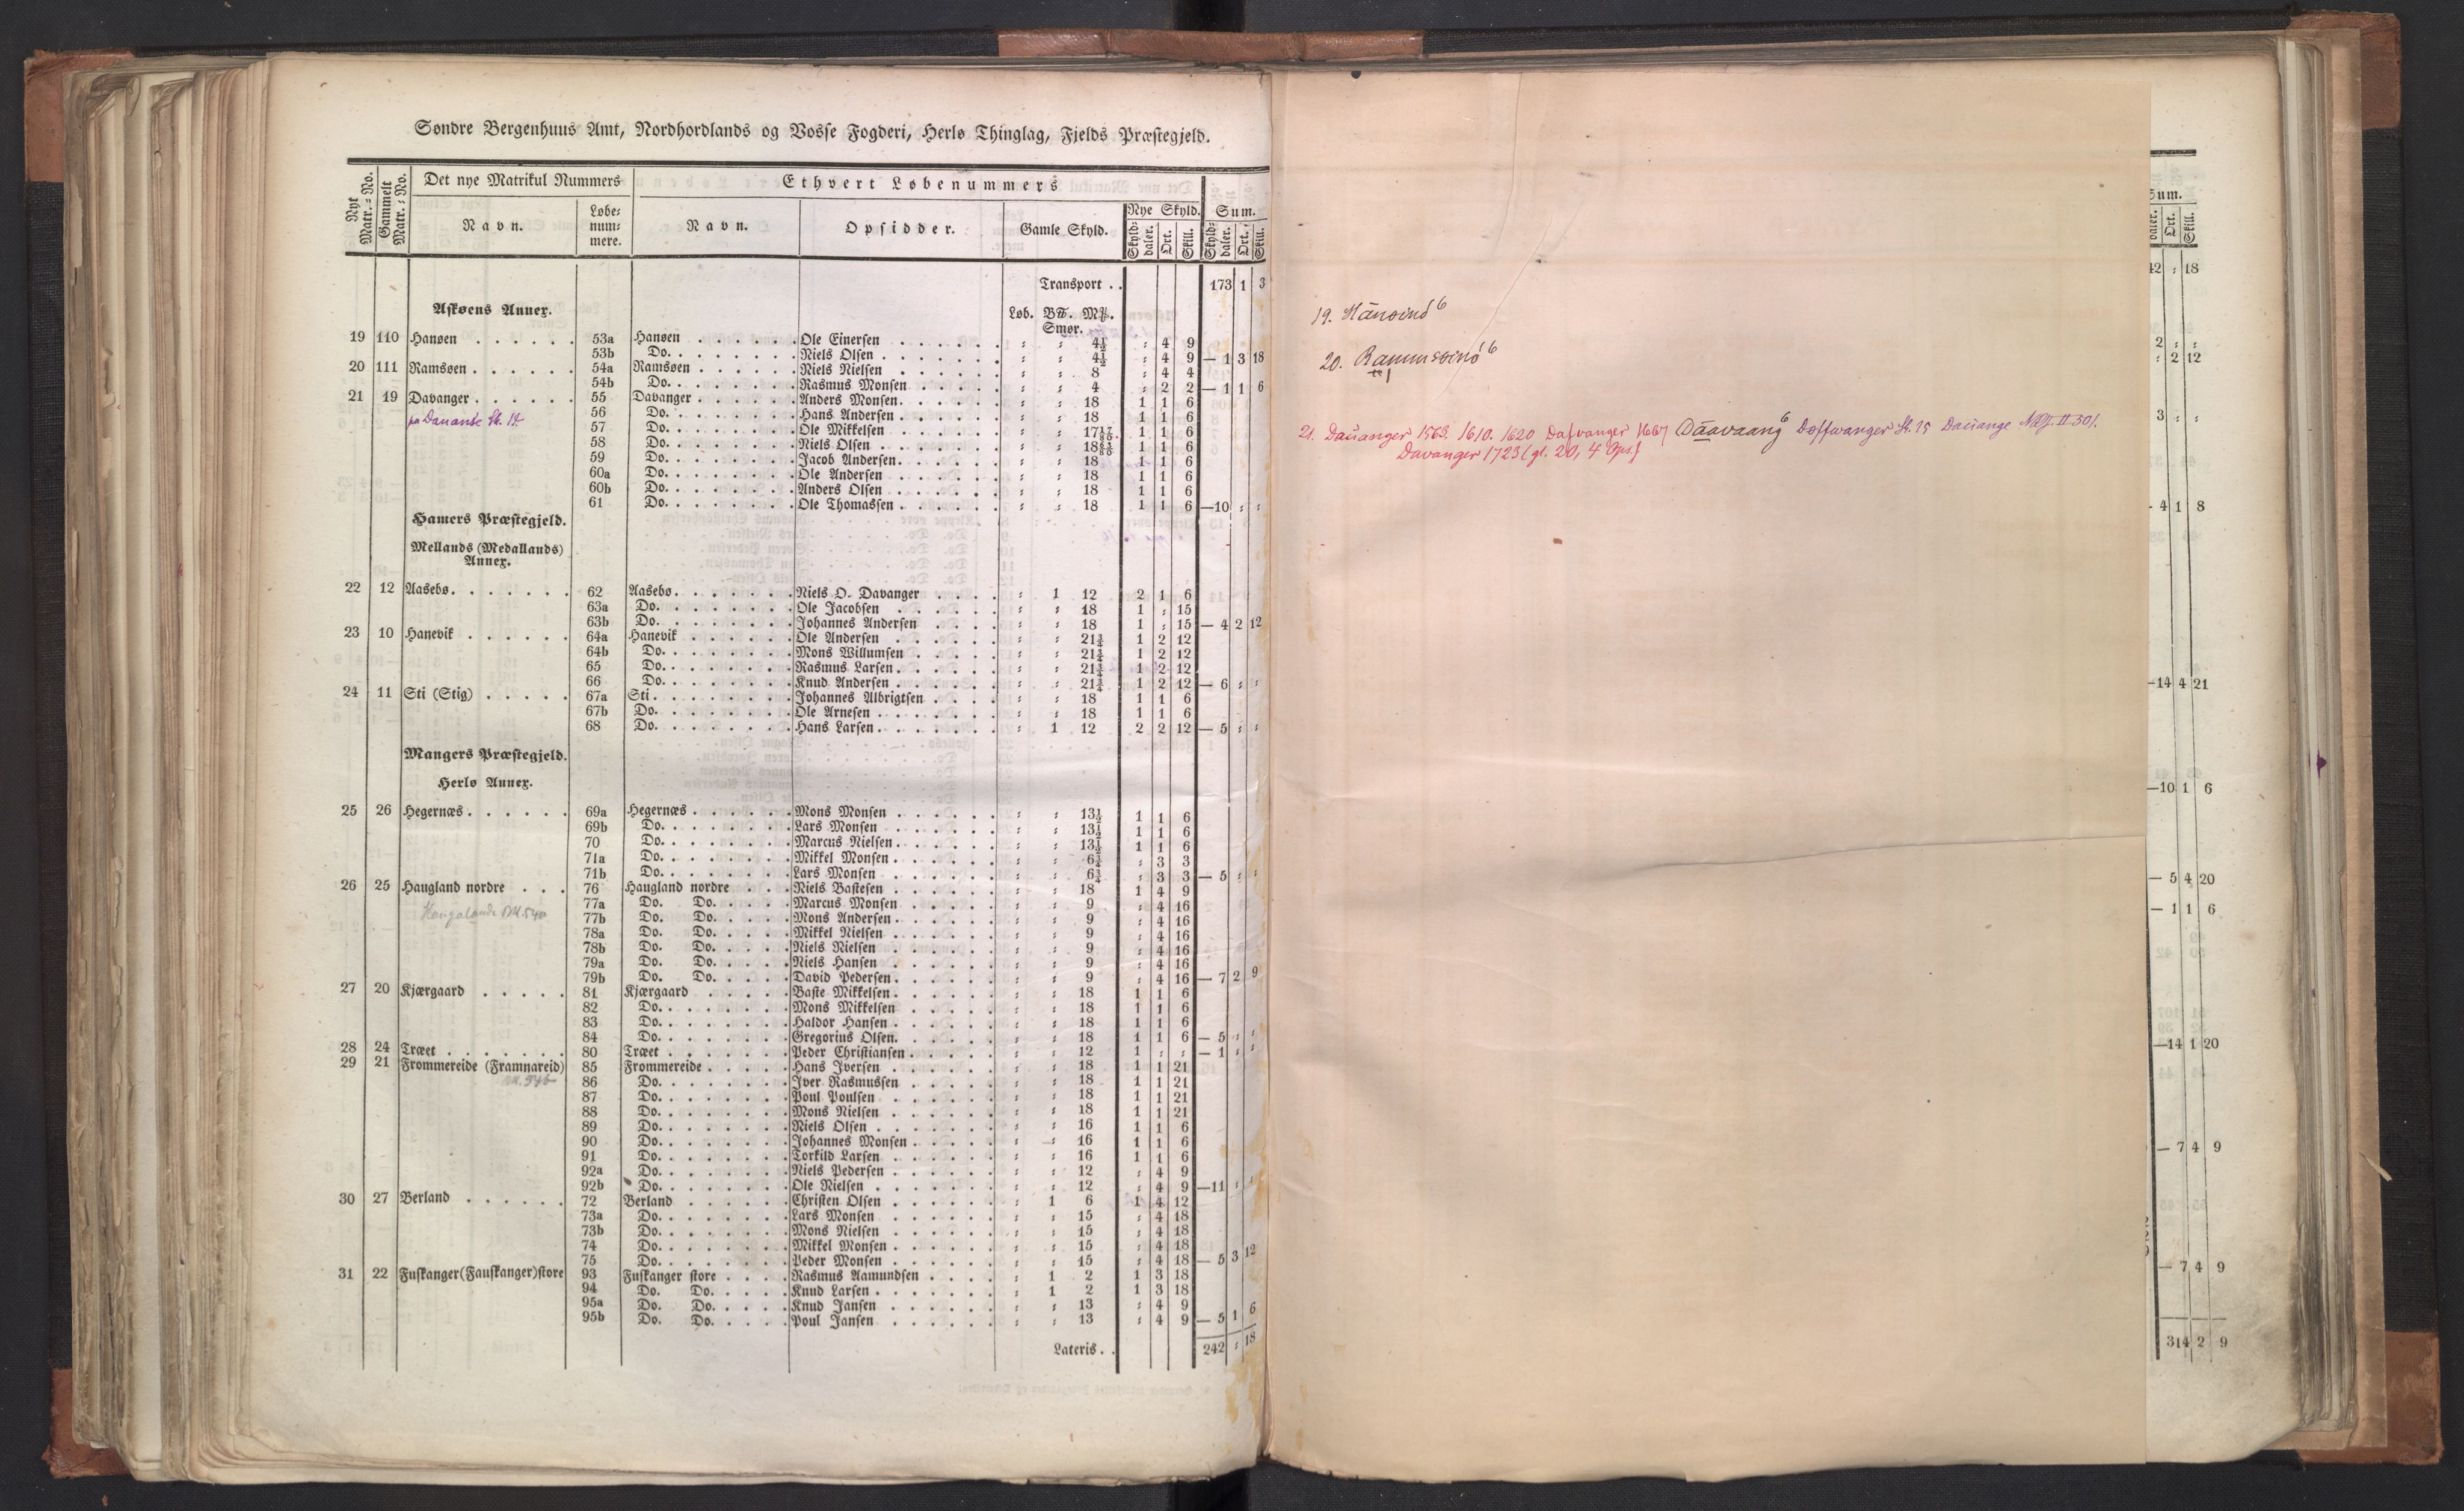 Søndre Bergenhuus Amt, Nordhordlands og Vosse Fogderi, Herlø Thinglag, Fjelds Præstegjeld.
Nyt Matr.-No. Gammelt Matr.-No. Det nye Matrikul Nummers Ethvert Løbenummers
Navn. Løbenummere. Navn. Opsidder. Gamle Skyld. Nye Skyld. Sum.
Skylddaler. Ort. Skill. Skylddaler. Ort. Skill.
Transport . . 173 1 3
Askøens Annex. Løb. B℔. M℔.
Smør.
19 110 Hanøen 53a Hanøen Ole Einersen : : 4½ : 4 9
53b Do. Niels Olsen : : 4½ : 4 9 — 1 3 18
20 111 Ramsøen 54a Ramsøen Niels Nielsen : : 8 : 4 4
54b Do. Rasmus Monsen : : 4 : 2 2 — 1 1 6
21 19 Davanger 55 Davanger Anders Monsen : : 18 1 1 6
56 Do. Hans Andersen : : 18 1 1 6
57 Do. Ole Mikkelsen : : 1 1 6
58 Do. Niels Olsen : : 1 1 6
59 Do. Jacob Andersen : : 18 1 1 6
60a Do. Ole Andersen : : 18 1 1 6
60b Do. Anders Olsen : : 18 1 1 6
61 Do. Ole Thomassen : : 18 1 1 6 —10 : :
Hamers Præstegjeld.
Mellands (Medallands)
Annex.
22 12 Aasebø 62 Aasebø Niels O. Davanger : 1 12 2 1 6
63a Do. Ole Jacobsen : : 18 1 : 15
63b Do. Johannes Andersen : : 18 1 : 15 — 4 2 12
23 10 Hanevik 64a Hanevik Ole Andersen : : 21¾ 1 2 12
64b Do. Mons Willumsen : : 21¾ 1 2 12
65 Do. Rasmus Larsen : : 21¾ 1 2 12
66 Do. Knud Andersen : : 21¾ 1 2 12 — 6 : :
24 11 Sti (Stig) 67a Sti Johannes Albrigtsen : : 18 1 1 6
67b Do. Ole Arnesen : : 18 1 1 6
68 Do. Hans Larsen : 1 12 2 2 12 — 5 : :
Mangers Præstegjeld.
Herlø Annex.
25 26 Hegernæs 69a Hegernæs Mons Monsen : : 13½ 1 1 6
69b Do. Lars Monsen : : 13½ 1 1 6
70 Do. Marcus Nielsen : : 13½ 1 1 6
71a Do. Mikkel Monsen : : 6¾ : 3 3
71b Do. Lars Monsen : : 6¾ : 3 3 — 5 : :
26 25 Haugland nordre 76 Haugland nordre Niels Bastesen : : 18 1 4 9
77a Do. Do. Marcus Monsen : : 9 : 4 16
77b Do. Do. Mons Andersen : : 9 : 4 16
78a Do. Do. Mikkel Nielsen : : 9 : 4 16
78b Do. Do. Niels Nielsen : : 9 : 4 16
79a Do. Do. Niels Hansen : : 9 : 4 16
79b Do. Do. David Pedersen : : 9 : 4 16 — 7 2 9
27 20 Kjærgaard 81 Kjærgaard Baste Mikkelsen : : 18 1 1 6
82 Do. Mons Mikkelsen : : 18 1 1 6
83 Do. Haldor Hansen : : 18 1 1 6
84 Do. Gregorius Olsen : : 18 1 1 6 — 5 : :
28 24 Træet 80 Træet Peder Christiansen : : 12 1 : : — 1 : :
29 21 Frommereide (Framnareid) 85 Frommereide Hans Iversen : : 18 1 1 21
86 Do. Iver Rasmussen : : 18 1 1 21
87 Do. Poul Poulsen : : 18 1 1 21
88 Do. Mons Nielsen : : 18 1 1 21
89 Do. Niels Olsen : : 16 1 1 6
90 Do. Johannes Monsen : : 16 1 1 6
91 Do. Torkild Larsen : : 16 1 1 6
92a Do. Niels Pedersen : : 12 : 4 9
92b Do. Ole Nielsen : : 12 : 4 9 —11 : :
30 27 Berland 72 Berland Christen Olsen : 1 6 1 4 12
73a Do. Lars Monsen : : 15 : 4 18
73b Do. Mons Nielsen : : 15 : 4 18
74 Do. Mikkel Monsen : : 15 : 4 18
75 Do. Peder Monsen : : 15 : 4 18 — 5 3 12
31 22 Fuskanger (Fauskanger) store 93 Fuskanger store Rasmus Aamundsen : 1 2 1 3 18
94 Do. Do. Knud Larsen : 1 2 1 3 18
95a Do. Do. Knud Jansen : : 13 : 4 9
95b Do. Do. Poul Jansen : : 13 : 4 9 — 5 1 6
Lateris . . 242 : 18
19. Hānøinó 6
20. Rammsøinó 6
21. Dauanger 1563. 1610. 1620 Dafvanger 1667 Dāavaang 6 Doffwanger St. 15 Dauange NRJ. II 501.
Davanger 1723 (gl. 20, 4 Ops.)
Sum.
daler. Ort. Skill.
42 : 18
2 : :
: 2 12
3 : :
- 4 1 8
—14 4 21
—10 1 6
— 5 4 20
— 1 1 6
—14 1 20
— 7 4 9
— 7 4 9
314 2 9